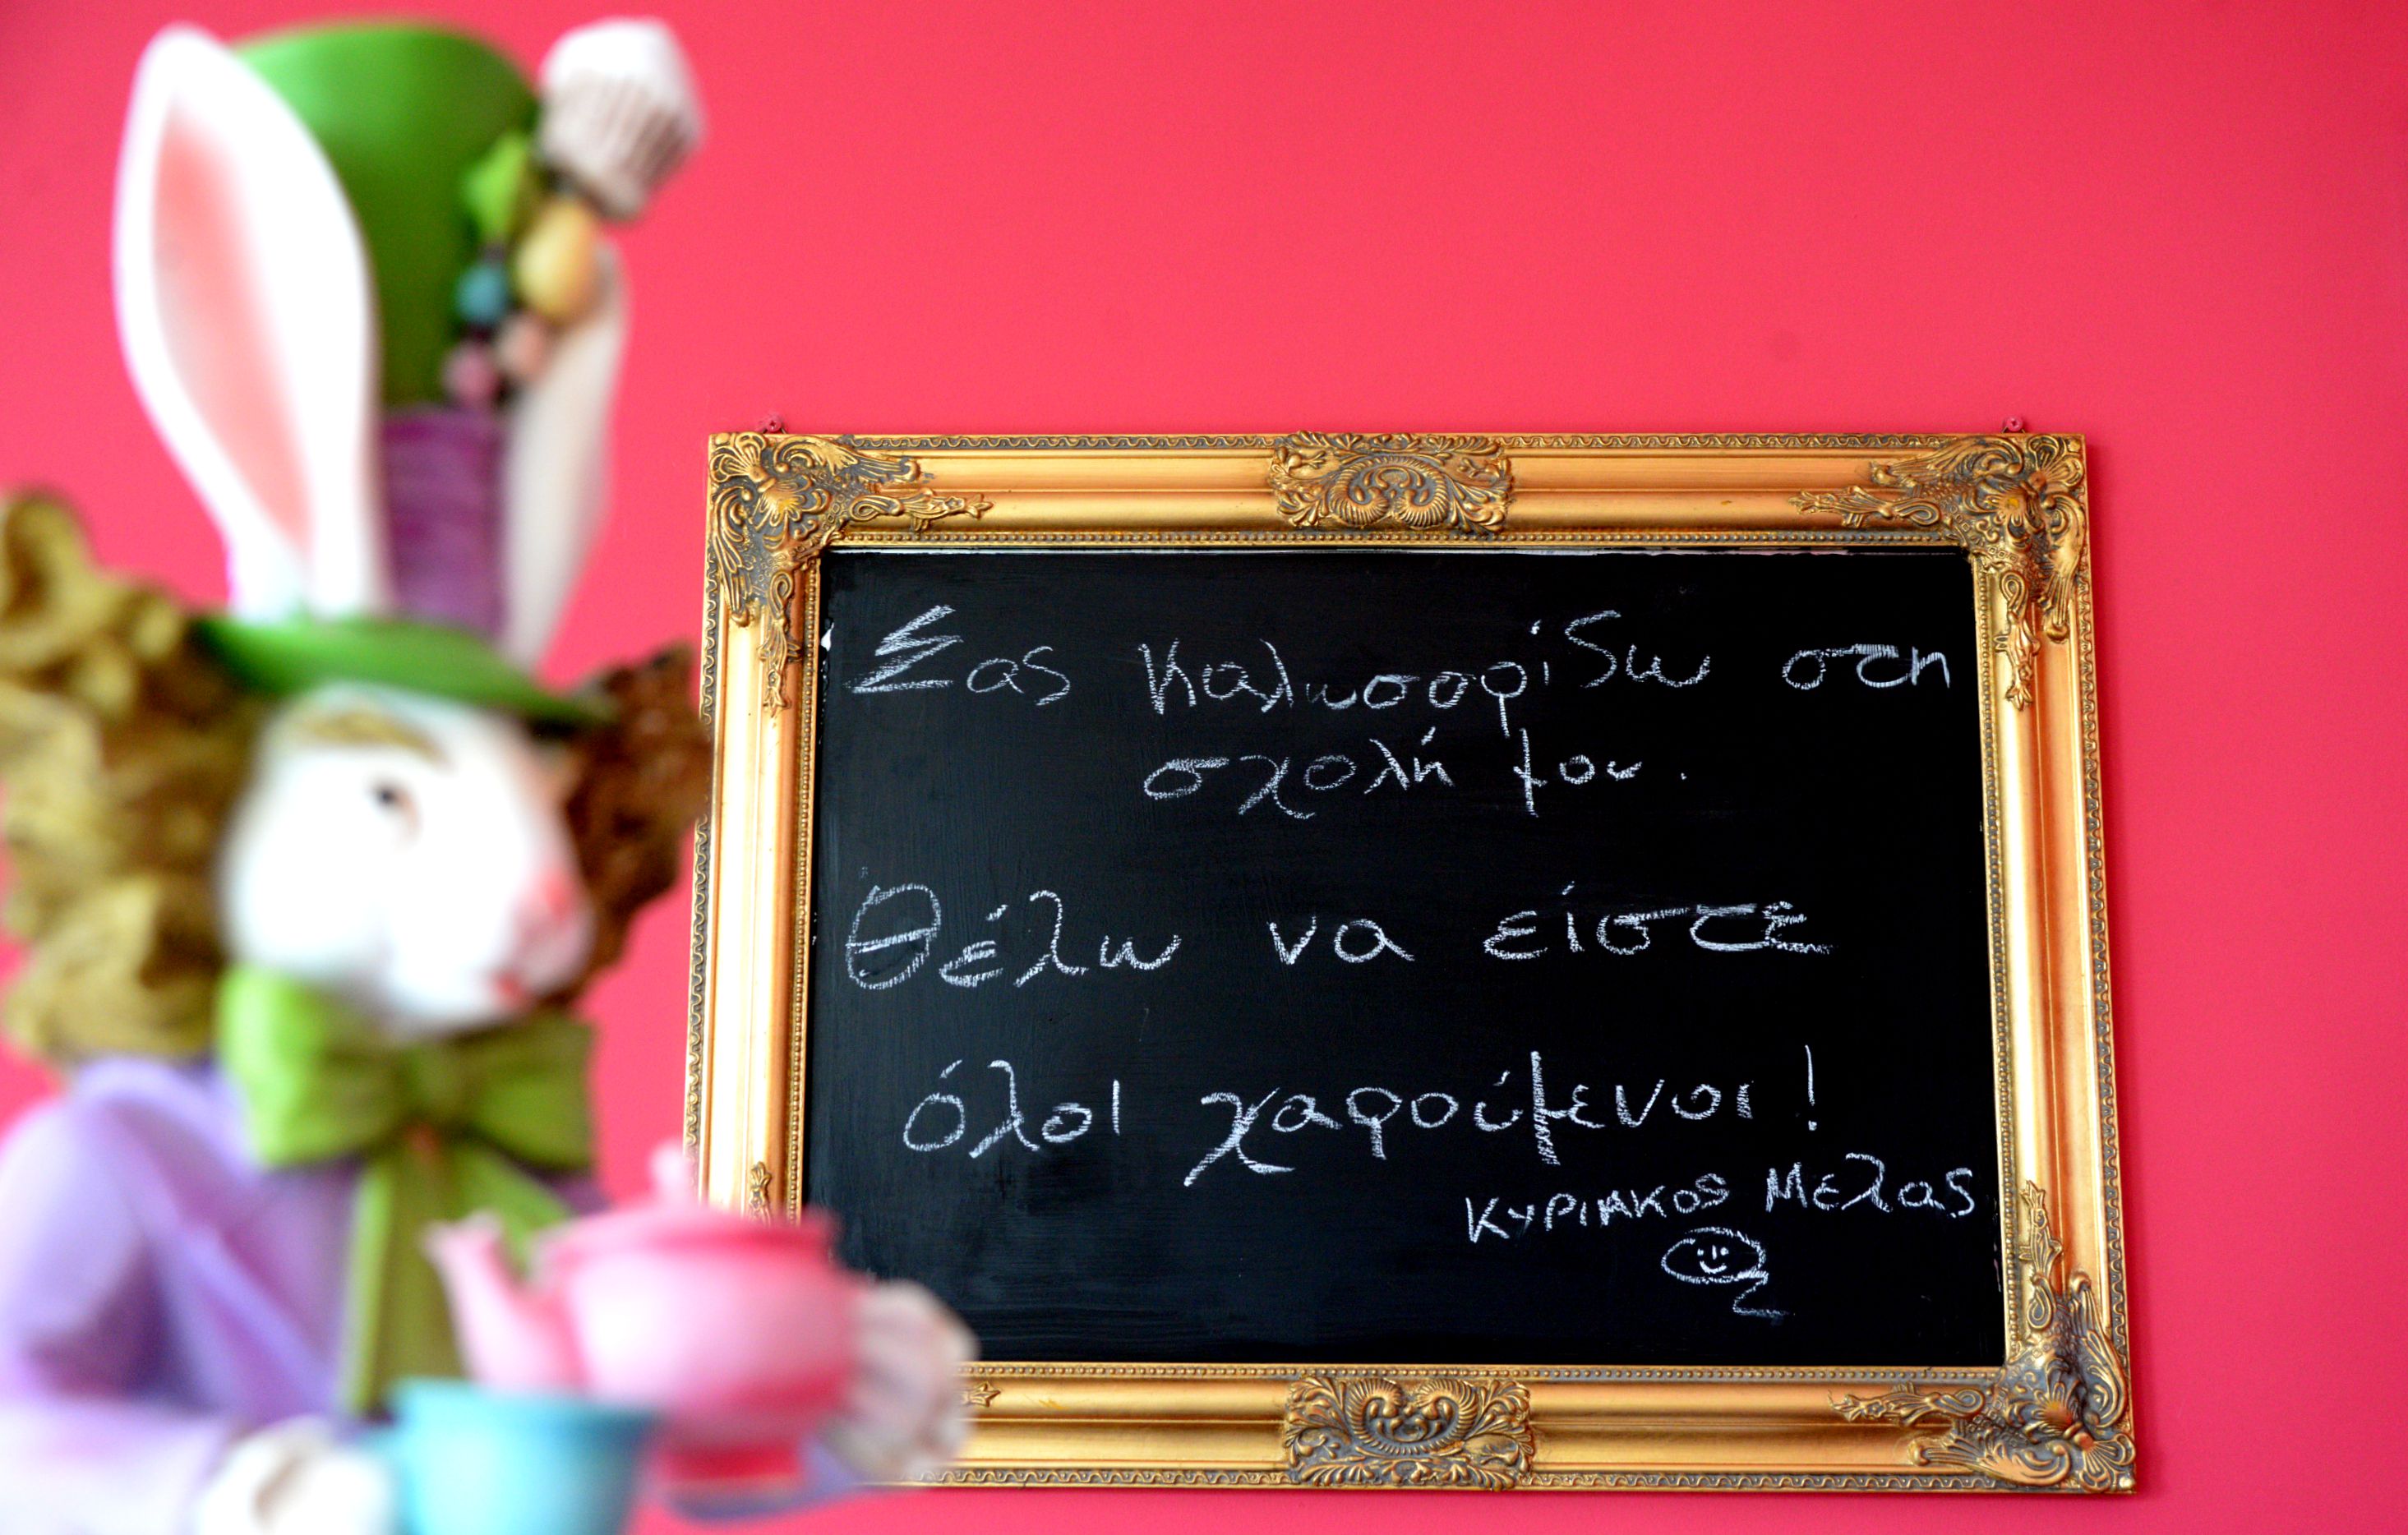 Σας καλωσορίζω στη
σχολή μου.
Θέλω να είστε
όλοι χαρούμενοι!
ΚΥΡΙΑΚΟΣ Μελας